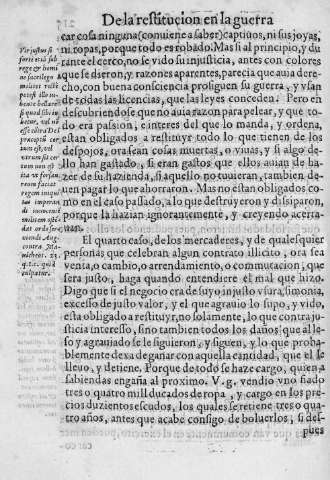 De la restitucion en la guerra
car cosa ninguna (conuiene a saber) captiuos, ni sus joyas,
ni ropas, porque todo es robado. Mas si al principio, y du
rante el cerco, no se vido su injusticia, antes con colores
que se dieron, y razones aparentes, parecia que auia dere-
cho, con buena consciencia prosiguen su guerra, y vsan
de todas las licencias, que las leyes conceden. Pero en
descubriendose que no auia razon para pelear, y que to-
do era passion, e interes del que lo manda, y ordena,
estan obligados a restituyr todo lo que tienen de los
despojos, ora sean cosas muertas, o viuas, y si algo de-
llo han gastado, si eran gastos que ellos auian de ha-
zer de su hazienda, si aquello no tuuieran, tambien de-
uen pagar lo que ahorraron. Mas no estan obligados co-
mo en el caso passado, a lo que destruyeron y dissiparon,
porque la hazian ignorantemente, y creyendo acerta-
uan.
El quarto caso, de los mercaderes, y de qualesquier
personas que celebran algun contrato illicito, ora sea
venta, o cambio, o arrendamiento, o commutacion, que
sera justo, haga quando entendiere el mal que hizo.
Digo que si el negocio era de suyo injusto vsura, simonia,
excesso de justo valor, y el que agrauio lo supo, y vido,
esta obligado a restituyr, no solamente, lo que contra ju-
sticia interesso, sino tambien todos los daños que al le-
so y agrauiado se le siguieron, y siguen, y lo que proba-
blemente dexa de ganar con aquella cantidad, que el le
lleuo, y detiene. Porque de todo se haze cargo, quien a
sabiendas engaña al proximo. V. g. vendio vno fiado
tres o quatro mill ducados de ropa, y cargo en los pre-
cios duzientos escudos, los quales se retiene tres o qua-
tro años, antes que acabe consigo de boluerlos, si des-
pues
Vir justus si
forte etiã sub
rege & homi
ne sacrilego
militet recte
potest illo iu-
bente bellare
si quod iubetur